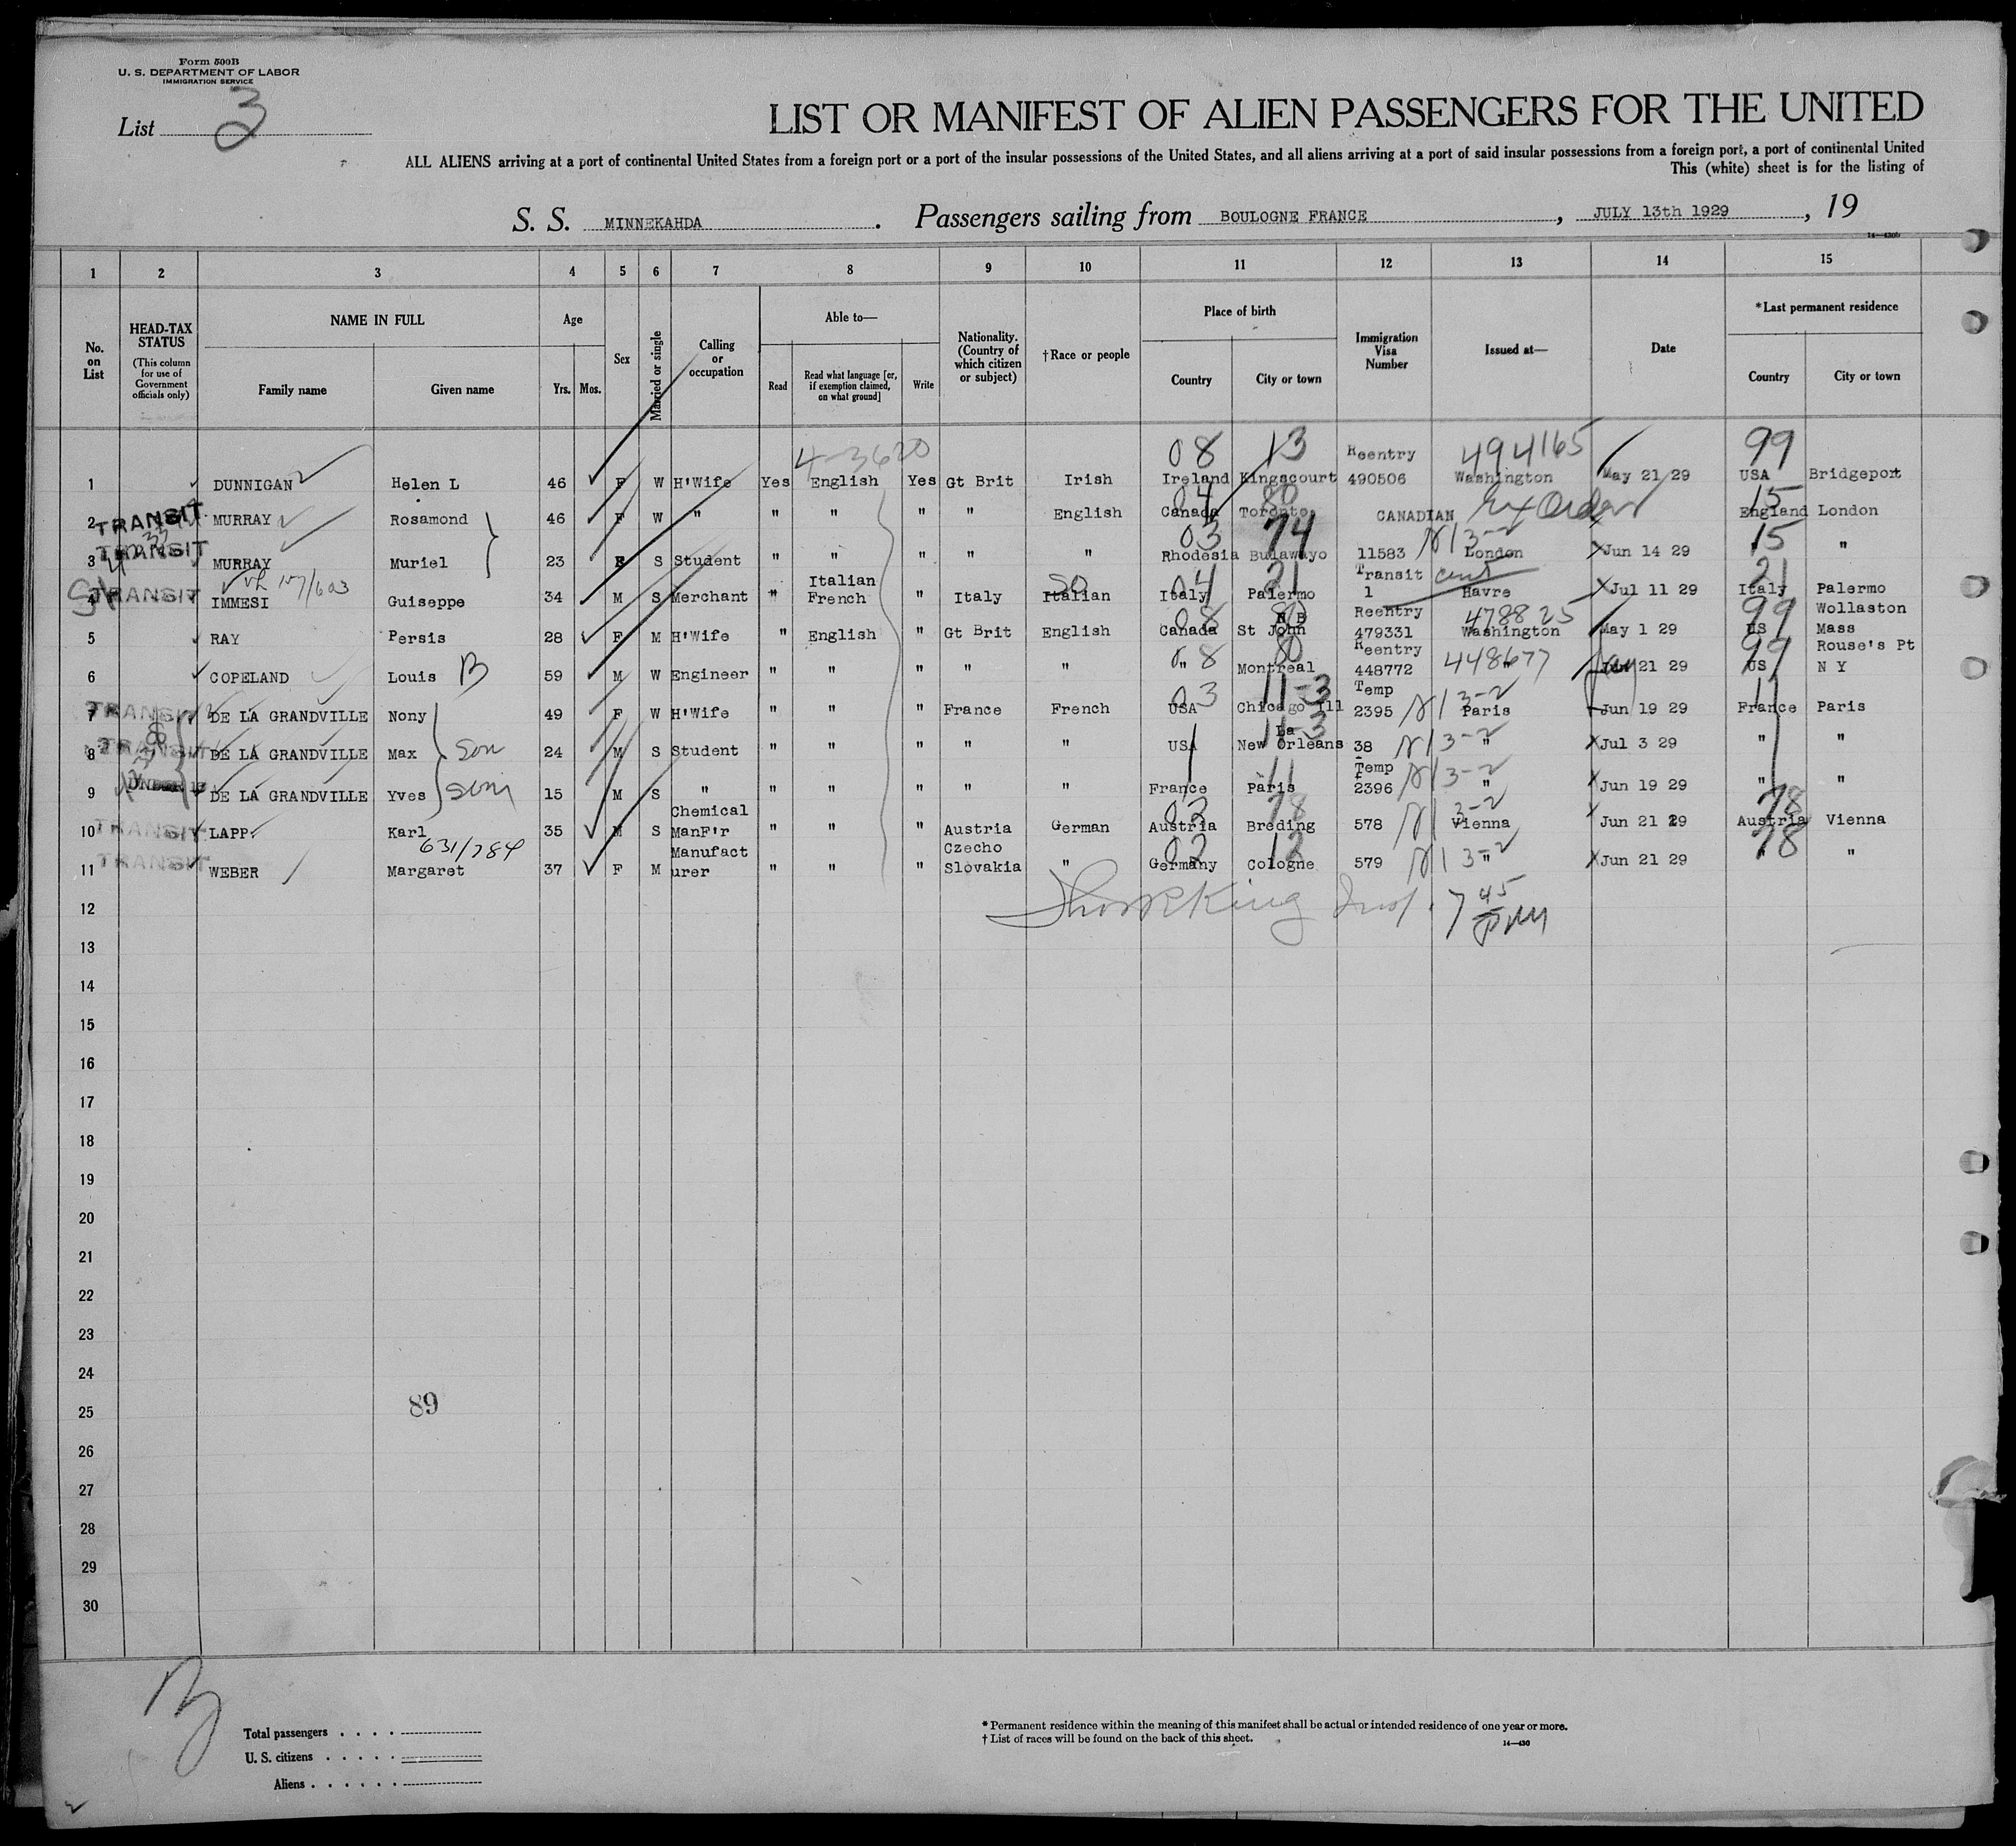 Form 500B
U. S. DEPARTMENT OF LABOR
IMMIGRATION SERVICE
List 3
LIST OR MANIFEST OF ALIEN PASSENGERS FOR THE UNITED
ALL ALIENS arriving at a port of continental United States from a foreign port or a port of the insular possessions of the United States, and all aliens arriving at a port of said insular possessions from a foreign port, a port of continental United
This (white) sheet is for the listing of
S. S. MINNEKAHDA . Passengers sailing from BOULOGNE FRANCE , JULY 13th 1929 , 19
1 2 3 4 5 6 7 8 9 10 11 12 13 14 15
No. on List
HEAD-TAX STATUS
(This column for use of Government officials only)
NAME IN FULL
Family name Given name
Age
Yrs. Mos.
Sex
Married or single
Calling or occupation
Able to—
Read
Read what language [or, if exemption claimed, on what ground]
Write
Nationality. (Country of which citizen or subject)
†Race or people
Place of birth
Country City or town
Immigration Visa Number
Issued at—
Date
*Last permanent residence
Country City or town
4-3620 08 13 Reentry 494165 99
1 DUNNIGAN Helen L 46 F W H'Wife Yes English Yes Gt Brit Irish Ireland Kingscourt 490506 Washington May 21 29 USA Bridgeport
04 80 15
2 TRANSIT MURRAY Rosamond 46 F W " " " " " English Canada Toronto CANADIAN England London
03 74 13-2 15
3 TRANSIT MURRAY Muriel 23 F S Student " " " " " Rhodesia Bulawayo 11583 London Jun 14 29 " "
Italian 04 21 Transit 21
4 TRANSIT IMMESI Guiseppe 34 M S Merchant " French " Italy Italian Italy Palermo 1 Havre Jul 11 29 Italy Palermo
08 80 N B Reentry 478825 99 Wollaston
5 RAY Persis 28 F M H'Wife " English " Gt Brit English Canada St John 479331 Washington May 1 29 US Mass
08 80 Reentry 448677 99 Rouse's Pt
6 COPELAND Louis B 59 M W Engineer " " " " " " Montreal 448772 " Jun 21 29 US N Y
03 11-3 Temp 13-2 11
7 TRANSIT DE LA GRANDVILLE Nony 49 F W H'Wife " " " France French USA Chicago Ill 2395 Paris Jun 19 29 France Paris
11-3 La 13-2
8 TRANSIT DE LA GRANDVILLE Max Son 24 M S Student " " " " " USA New Orleans 38 " Jul 3 29 " "
11 Temp 13-2
9 DE LA GRANDVILLE Yves Son 15 M S " " " " " " France Paris 2396 " Jun 19 29 " "
Chemical 02 78 3-2 78
10 TRANSIT LAPP Karl 35 M S ManF'r " " " Austria German Austria Breding 578 Vienna Jun 21 29 Austria Vienna
631/784 Manufact Czecho 02 12 13-2 78
11 TRANSIT WEBER Margaret 37 F M urer " " " Slovakia " Germany Cologne 579 " Jun 21 29 " "
12 King 7 45 PM
13
14
15
16
17
18
19
20
21
22
23
24
25 89
26
27
28
29
30
Total passengers . . . .
U. S. citizens . . . . .
Aliens . . . . . .
* Permanent residence within the meaning of this manifest shall be actual or intended residence of one year or more.
† List of races will be found on the back of this sheet.
14—430